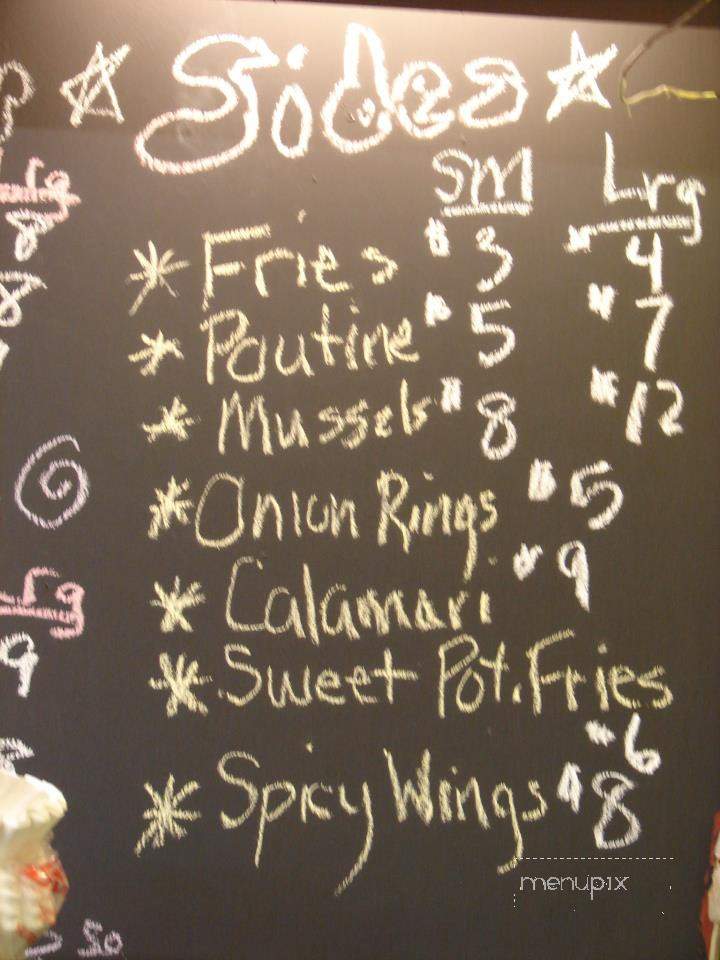 Sides
SM Lrg
* Fries $3 $4
* Poutine $5 $7
* Mussels $8 $12
* Onion Rings $5
* Calamari $9
* Sweet Pot. Fries
$6
* Spicy Wings $8
menupix
Lrg
8
8
Lrg
9
50